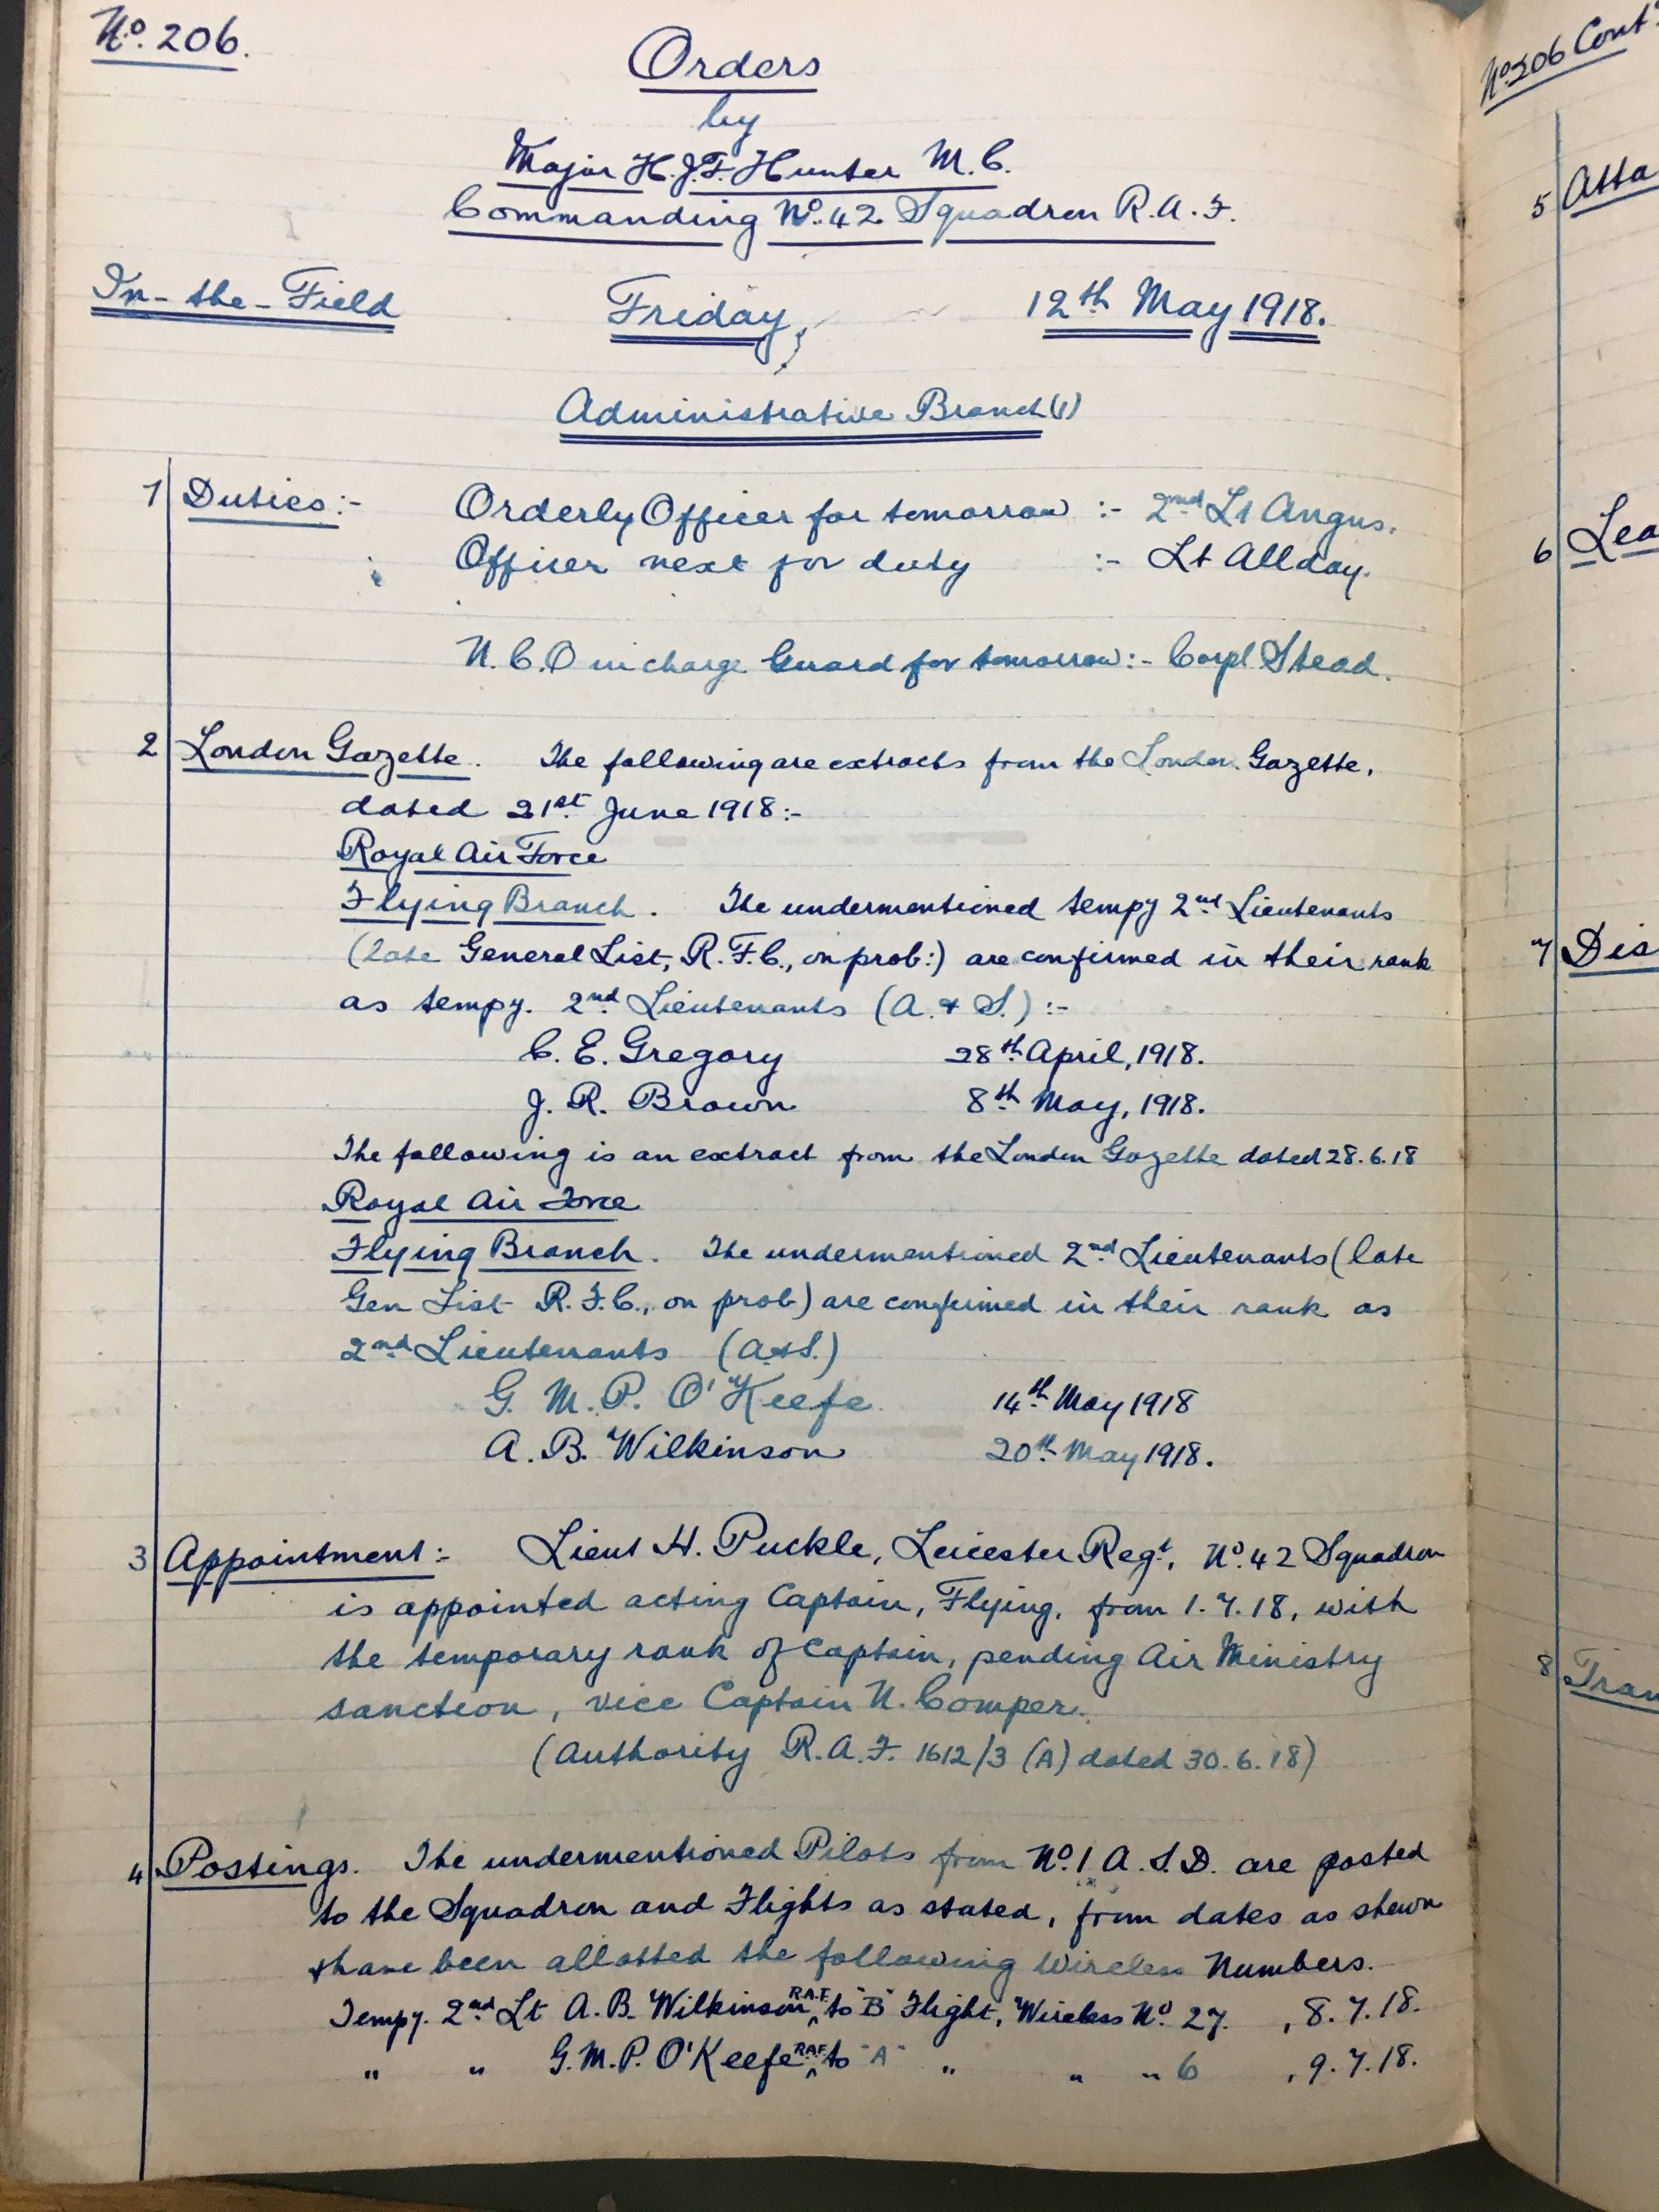 No. 206.
Orders
by
Major H.J.F. Hunter M.C.
Commanding No. 42 Squadron R.A.F.
In-the-Field Friday, 12th May 1918.
Administrative Branch (1)
1 Duties:- Orderly Officer for tomorrow :- 2nd Lt Angus.
Officer next for duty :- Lt Allday.
N.C.O in charge Guard for tomorrow:- Corpl Stead.
2 London Gazette. The following are extracts from the London Gazette,
dated 21st June 1918:-
Royal Air Force
Flying Branch. The undermentioned tempy 2nd Lieutenants
(late General List, R.F.C., on prob:) are confirmed in their rank
as tempy. 2nd Lieutenants (A. & S.) :-
C. E. Gregory 28th April, 1918.
J. R. Brown 8th May, 1918.
The following is an extract from the London Gazette dated 28.6.18
Royal Air Force
Flying Branch. The undermentioned 2nd Lieutenants (late
Gen List R.F.C., on prob) are confirmed in their rank as
2nd Lieutenants (A&S.)
G. M. P. O'Keefe 14th May 1918
A. B. Wilkinson 20th May 1918.
3 Appointment:- Lieut H. Puckle, Leicester Regt, No. 42 Squadron
is appointed acting Captain, Flying, from 1.7.18, with
the temporary rank of Captain, pending Air Ministry
sanction, vice Captain N. Comper.
(Authority R.A.F. 1612/3 (A) dated 30.6.18)
4 Postings. The undermentioned Pilots from No. 1 A.S.D. are posted
to the Squadron and Flights as stated, from dates as shewn
& have been allotted the following Wireless Numbers.
Tempy. 2nd Lt A.B. Wilkinson R.A.F. to "B" Flight, Wireless No. 27. , 8.7.18.
" " G.M.P. O'Keefe RAF to "A" " " " 6 , 9.7.18.
No. 206 Contd
5 Atta
6 Lea
7 Dis
8 Tran